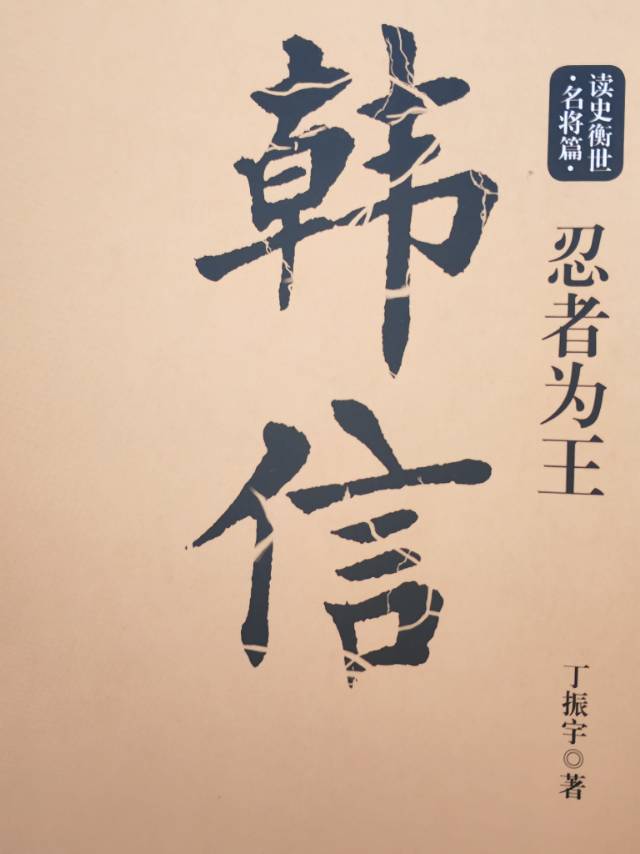 韩信
读史衡世
·名将篇·
忍者为王
丁振宇◎著